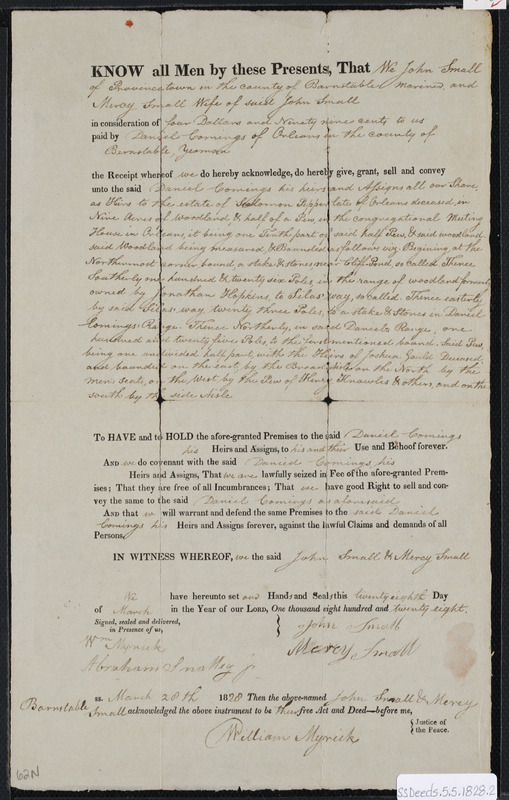 KNOW all Men by these Presents, That We John Small
of Provincetown in the county of Barnstable Mariner, and
Mercy Small Wife of said John Small
in consideration of four Dollars and Ninety nine cents to us
paid by Daniel Comings of Orleans in the county of
Barnstable, Yeoman
the Receipt whereof we do hereby acknowledge, do hereby give, grant, sell and convey
unto the said Daniel Comings his heirs and Assigns all our Share,
as Heirs to the estate of Solomon late of Orleans deceased, in
Nine Acres of Woodland, & half of a Pew, in the Congregational Meeting
House in Orleans, it being one Tenth part of said half Pew, & said woodland
said Woodland being measured, & Bounded as follows viz. Begining, at the
Northermost corner bound, a stake & stones, near Cliff Pond, so called Thence
Southerly one hundred & twenty six Poles, in the range of woodland formerly
owned by Jonathan Hopkins, to Silas' way, so called. Thence easterly
by said Silas' way twenty three Poles, to a stake & stones in Daniel
Comings' Range. Thence Northerly, in said Daniels Range, one
hundred and twenty five Poles, to the first mentioned bound. Said Pew,
being one undivided half part, with the Heirs of Joshua Gould Deceased,
and bounded on the east by the Broad on the North by the
mens seats, on the West by the Pew of Henry Knowles & others, and on the
south by the side Aisle
To HAVE and to HOLD the afore-granted Premises to the said Daniel Comings
his Heirs and Assigns, to his and their Use and Behoof forever.
AND we do covenant with the said Daniel Comings his
Heirs and Assigns, That we are lawfully seized in Fee of the afore-granted Prem-
ises; That they are free of all Incumbrances; That we have good Right to sell and con-
vey the same to the said Daniel Comings as aforesaid
And that we will warrant and defend the same Premises to the said Daniel
Comings his Heirs and Assigns forever, against the lawful Claims and demands of all
Persons.
IN WITNESS WHEREOF, we the said John Small & Mercy Small
We have hereunto set our Hands and Seals this twenty eighth Day
of March in the Year of our LORD, One thousand eight hundred and twenty eight.
Signed, sealed and delivered,
in Presence of us,
John Small
Wm Myrick
Mercy Small
Abraham Smalley jr
Barnstable ss. March 28th 1828 Then the above-named John Small & Mercy
Small acknowledged the above instrument to be their free Act and Deed—before me,
William Myrick
Justice of
the Peace.
62N
SSDeeds.5.5.1828.2